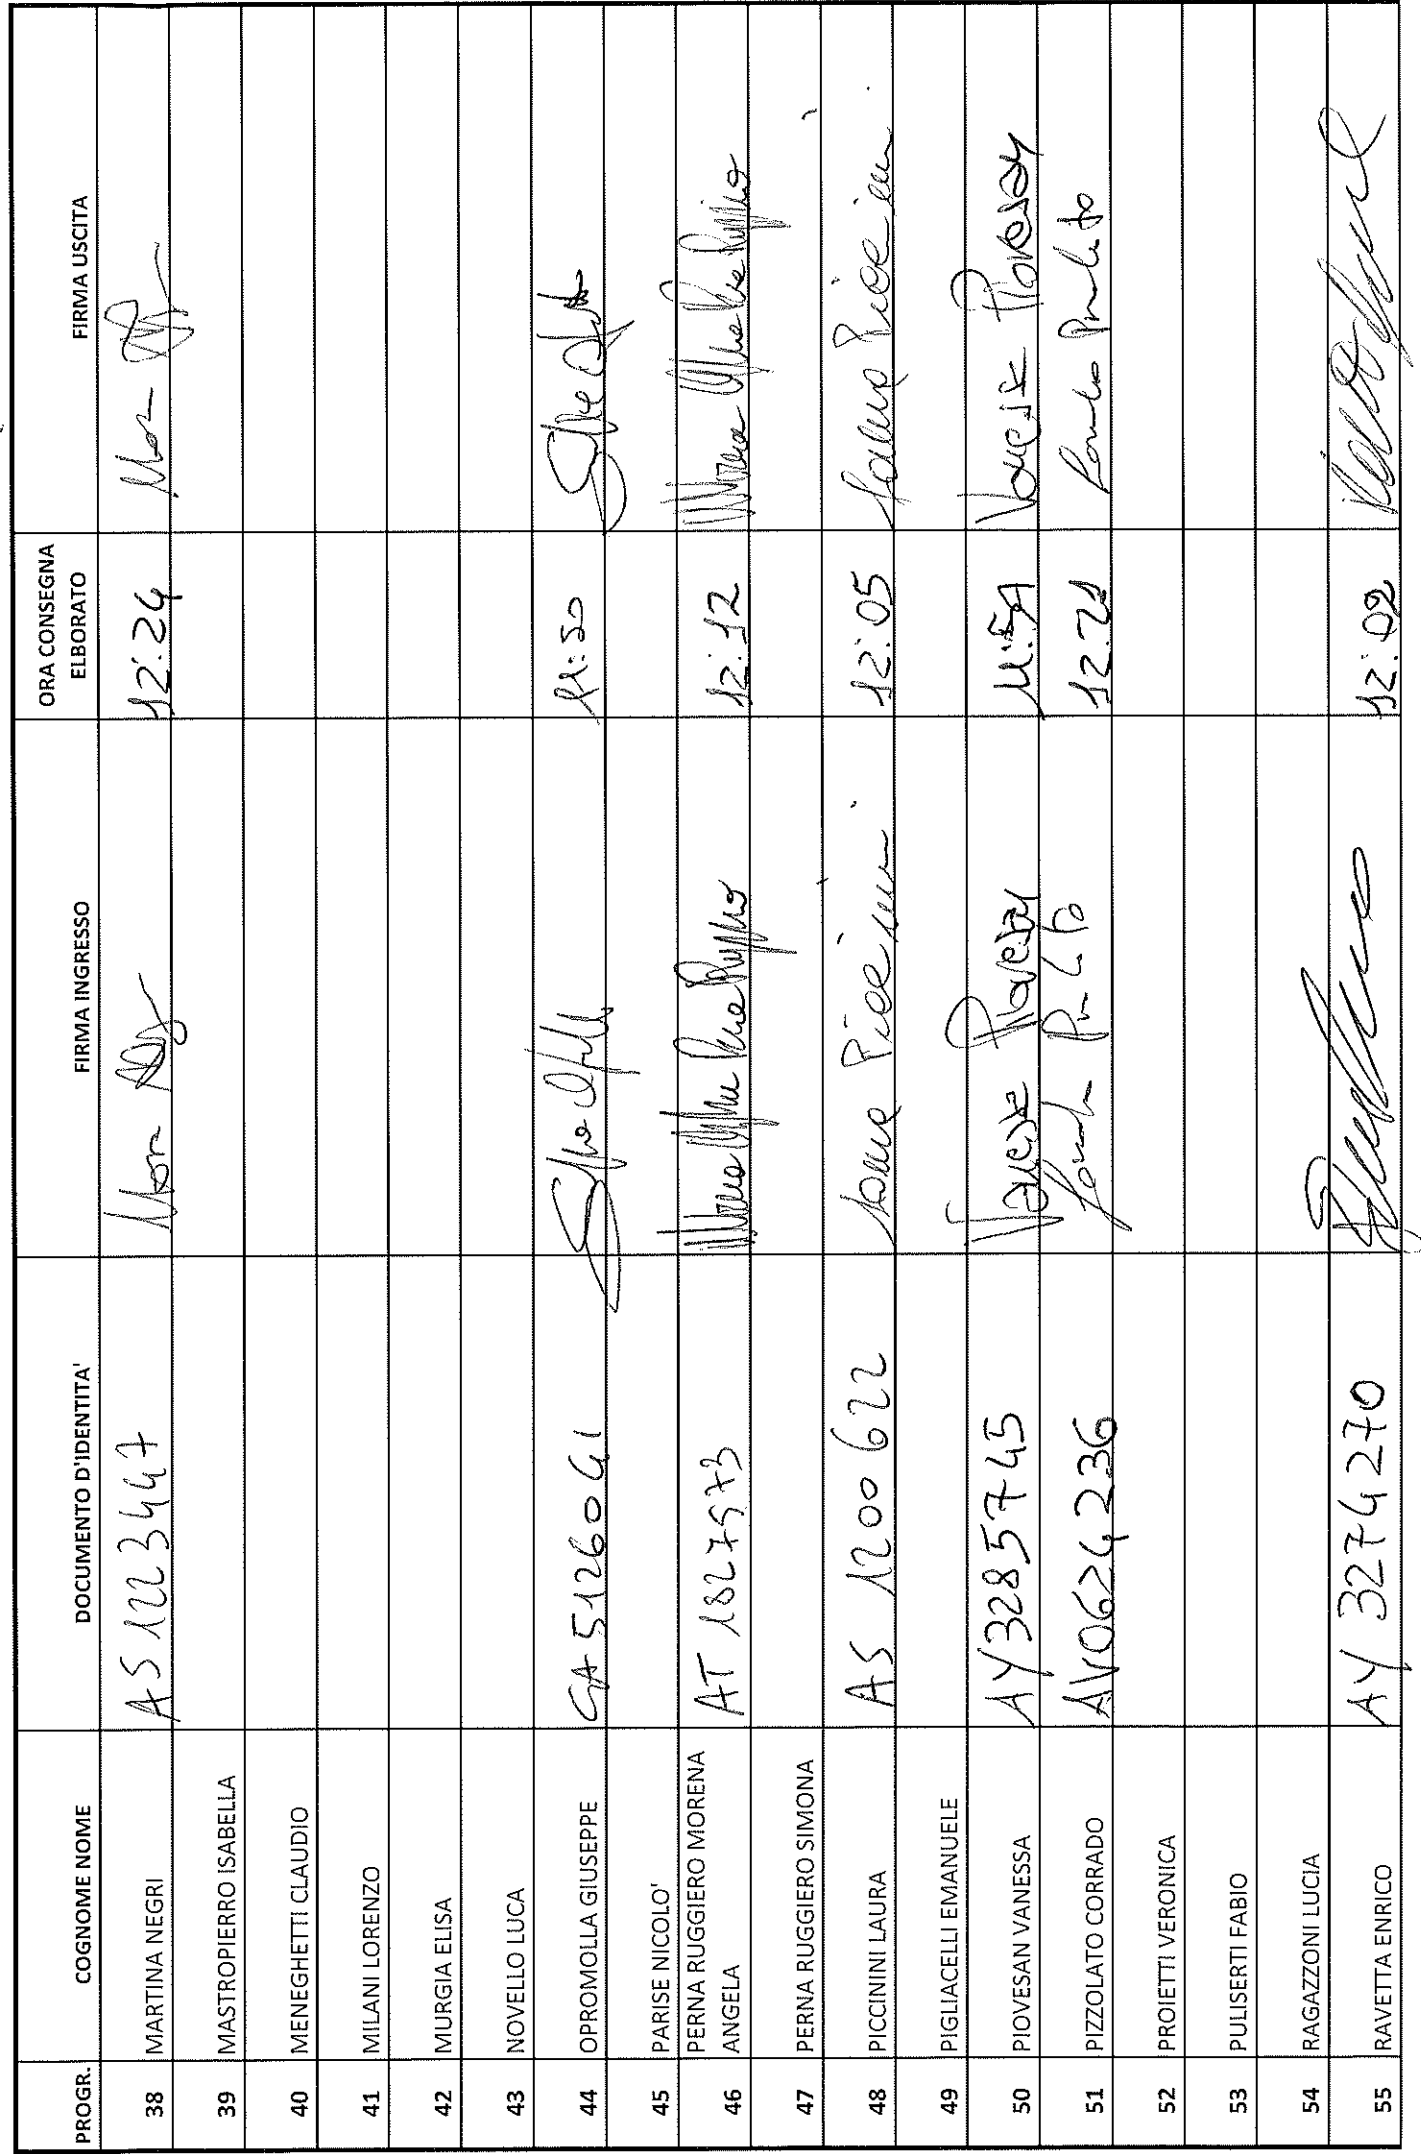 PROGR. COGNOME NOME DOCUMENTO D'IDENTITA' FIRMA INGRESSO ORA CONSEGNA ELBORATO FIRMA USCITA
38 MARTINA NEGRI AS1223447 12:24
39 MASTROPIERRO ISABELLA
40 MENEGHETTI CLAUDIO
41 MILANI LORENZO
42 MURGIA ELISA
43 NOVELLO LUCA
44 OPROMOLLA GIUSEPPE
45 PARISE NICOLO'
46 PERNA RUGGIERO MORENA ANGELA 12:12
47 PERNA RUGGIERO SIMONA
48 PICCININI LAURA AS 1200622 Laura Piccinini 12:05 Laura Piccinini
49 PIGLIACELLI EMANUELE
50 PIOVESAN VANESSA AY3285745 Vanessa Piovesan Vanessa Piovesan
51 PIZZOLATO CORRADO AV0624236 12.21
52 PROIETTI VERONICA
53 PULISERTI FABIO
54 RAGAZZONI LUCIA
55 RAVETTA ENRICO AY 3274270